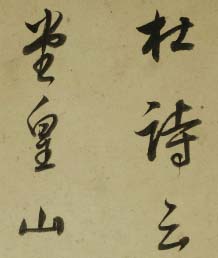 杜詩云
堂皇山